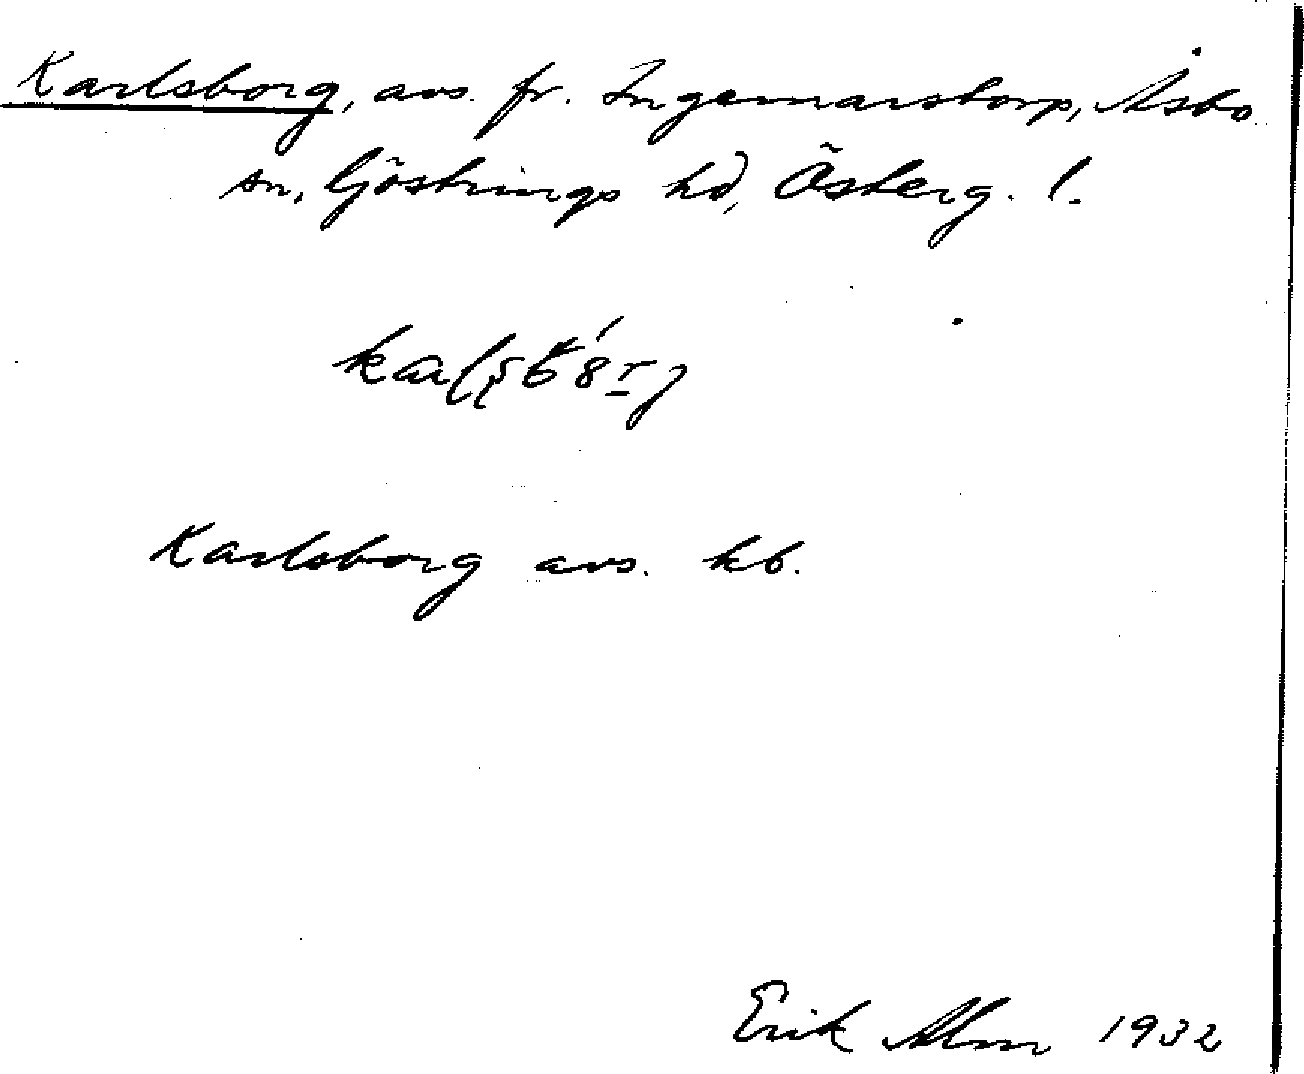 Karlsborg, avs. fr. Ingemarstorp, Åsbo
sn, Göstrings hd, Österg. l.
Karlsborg avs. kb.
Erik Alm 1932